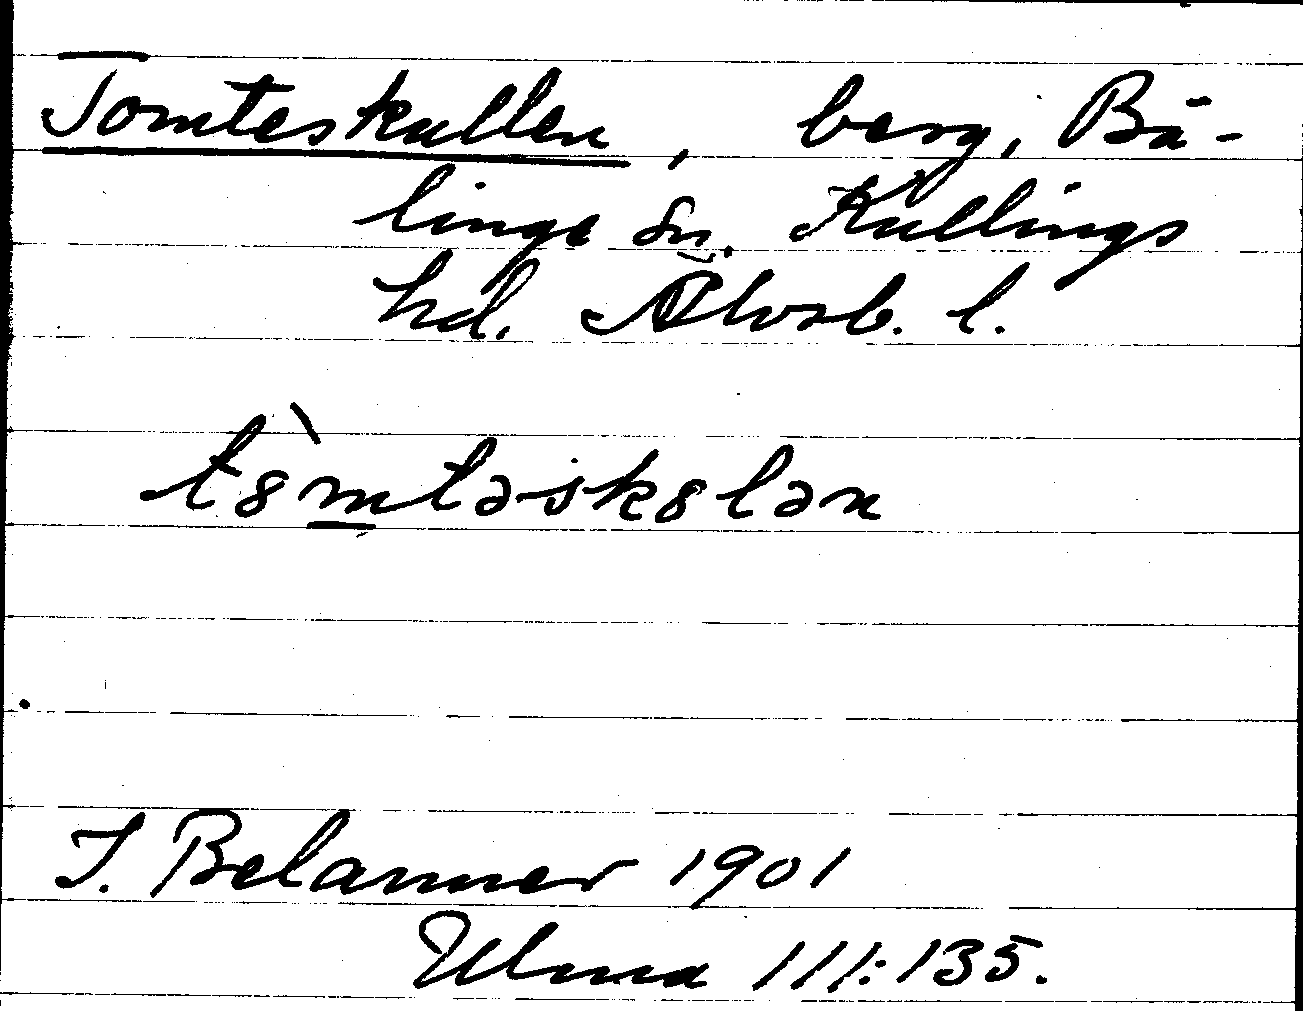 Tomteskullen, berg, Bä-
linge sn. Kullings
hd. Älvsb. l.
t8̀mtəskslən
J. Belanner 1901
Ulma 111:135.